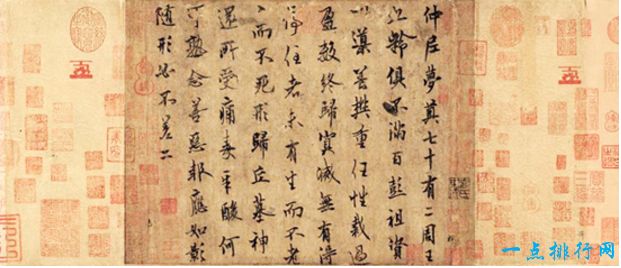 仲尼夢奠七十有二周王
九齡俱不滿百彭祖資
以導養樊重任性裁過
盈數終歸冥滅無有得
停住者未有生而不老
老而不死形歸丘墓神
還所受痛毒辛酸何
可熟念善惡報應如影
隨形必不差二
一点排行网